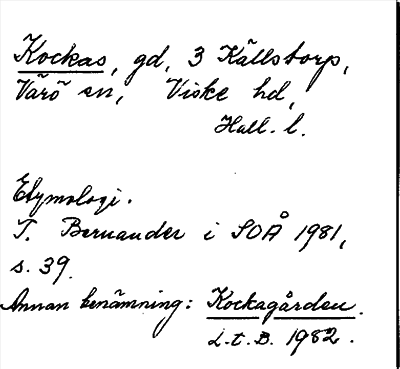 Kockas, gd, 3 Källstorp,
Värö sn, Viske hd,
Hall. l.
Etymologi.
T. Bernander i SOÅ 1981,
s. 39.
Annan benämning: Kockagården.
L.t.B. 1982.